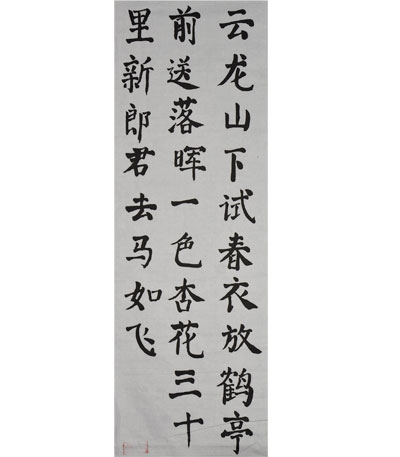 云龙山下试春衣放鹤亭
前送落晖一色杏花三十
里新郎君去马如飞